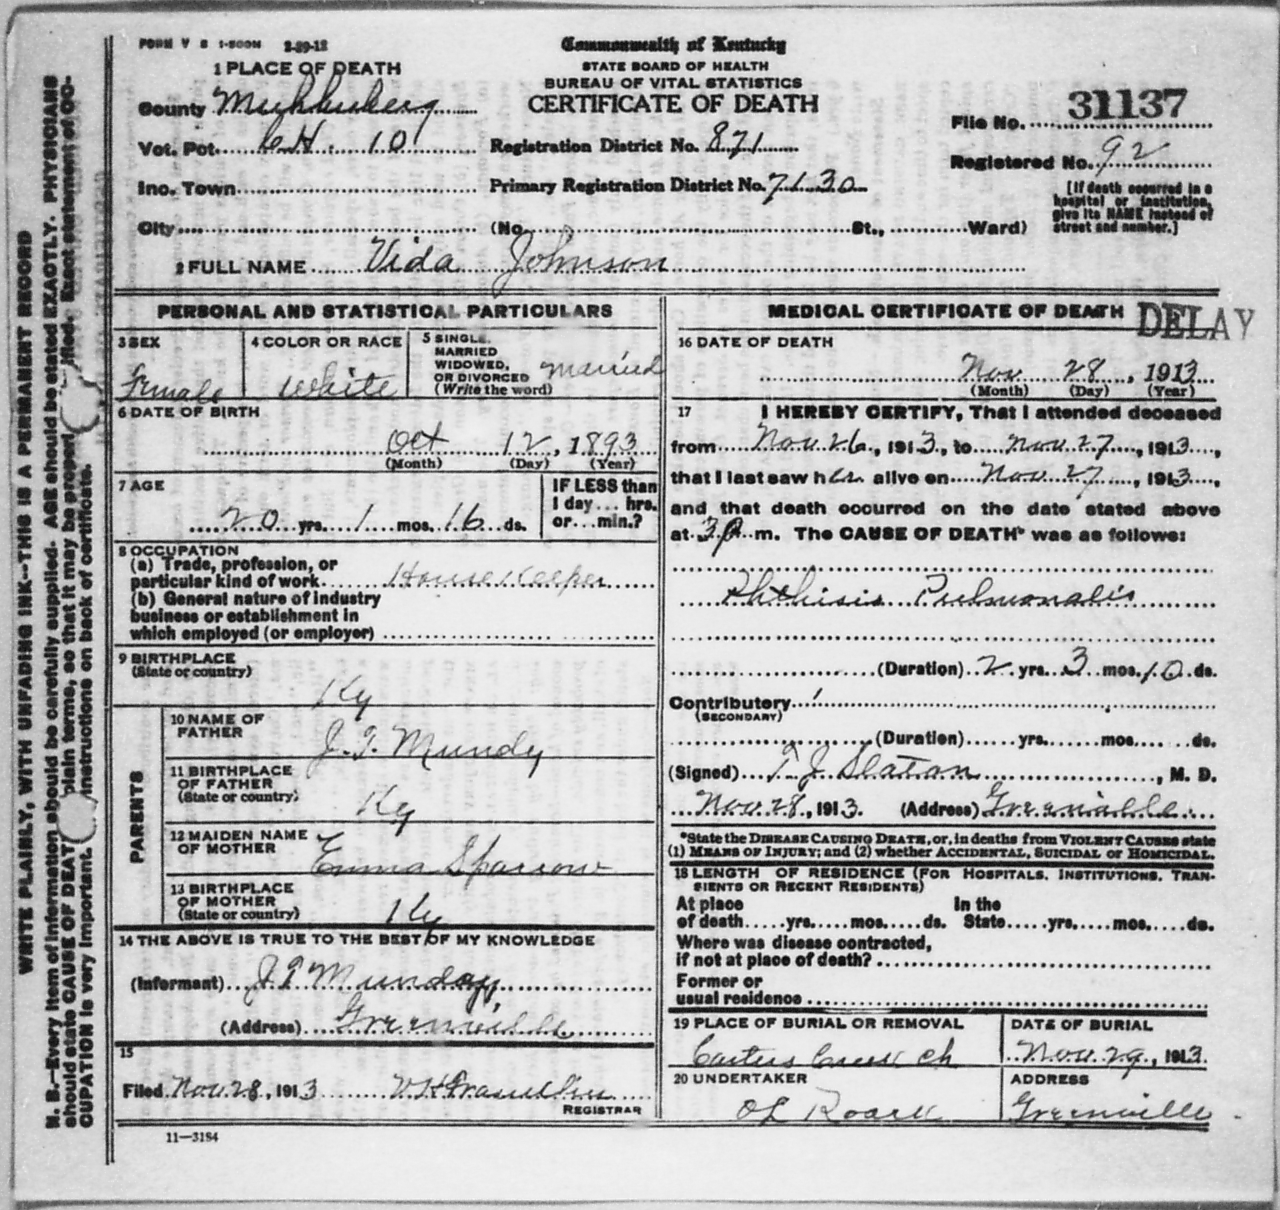 FORM V S 1-500M 2-29-12
Commonwealth of Kentucky
STATE BOARD OF HEALTH
BUREAU OF VITAL STATISTICS
CERTIFICATE OF DEATH
1 PLACE OF DEATH
County Muhlenberg
Vot. Pct. C.H. 10
Inc. Town
City (No. St., Ward)
Registration District No. 871
Primary Registration District No. 7130
File No. 31137
Registered No. 92
[If death occurred in a
hospital or institution,
give its NAME instead of
street and number.]
2 FULL NAME Vida Johnson
PERSONAL AND STATISTICAL PARTICULARS
3 SEX
Female
4 COLOR OR RACE
White
5 SINGLE,
MARRIED
WIDOWED,
OR DIVORCED
(Write the word)
married
6 DATE OF BIRTH
Oct 12, 1893
(Month) (Day) (Year)
7 AGE
20 yrs. 1 mos. 16 ds.
IF LESS than
1 day... hrs.
or...min.?
8 OCCUPATION
(a) Trade, profession, or
particular kind of work House Keeper
(b) General nature of industry
business or establishment in
which employed (or employer)
9 BIRTHPLACE
(State or country)
Ky
PARENTS
10 NAME OF
FATHER
J. T. Mundy
11 BIRTHPLACE
OF FATHER
(State or country)
Ky
12 MAIDEN NAME
OF MOTHER
Emma Sparrow
13 BIRTHPLACE
OF MOTHER
(State or country)
Ky
14 THE ABOVE IS TRUE TO THE BEST OF MY KNOWLEDGE
(Informant) J T Munday,
(Address) Greenville
15
Filed Nov. 28, 1913
REGISTRAR
11—3184
MEDICAL CERTIFICATE OF DEATH
DELAY
16 DATE OF DEATH
Nov 28, 1913
(Month) (Day) (Year)
17 I HEREBY CERTIFY, That I attended deceased
from Nov. 26, 1913, to Nov. 27, 1913,
that I last saw her alive on Nov. 27, 1913,
and that death occurred on the date stated above
at 3 p m. The CAUSE OF DEATH* was as follows:
Phthisis Pulmonalis
(Duration) 2 yrs. 3 mos. 10 ds.
Contributory
(SECONDARY)
(Duration) yrs. mos. ds.
(Signed) T. J. Slaton, M. D.
Nov. 28, 1913. (Address) Greenville
*State the DISEASE CAUSING DEATH, or, in deaths from VIOLENT CAUSES state
(1) MEANS OF INJURY; and (2) whether ACCIDENTAL, SUICIDAL or HOMICIDAL.
18 LENGTH OF RESIDENCE (FOR HOSPITALS, INSTITUTIONS, TRAN-
SIENTS OR RECENT RESIDENTS)
At place In the
of death yrs. mos. ds. State yrs. mos. ds.
Where was disease contracted,
if not at place of death?
Former or
usual residence
19 PLACE OF BURIAL OR REMOVAL
Carters Creek Ch
DATE OF BURIAL
Nov. 29, 1913.
20 UNDERTAKER
O L Roark
ADDRESS
Greenville
WRITE PLAINLY, WITH UNFADING INK--THIS IS A PERMANENT RECORD
N. B.—Every item of information should be carefully supplied. AGE should be stated EXACTLY. PHYSICIANS
should state CAUSE OF DEATH plain terms, so that it may be properl ified. Exact statement of OC-
CUPATION is very important. instructions on back of certificate.